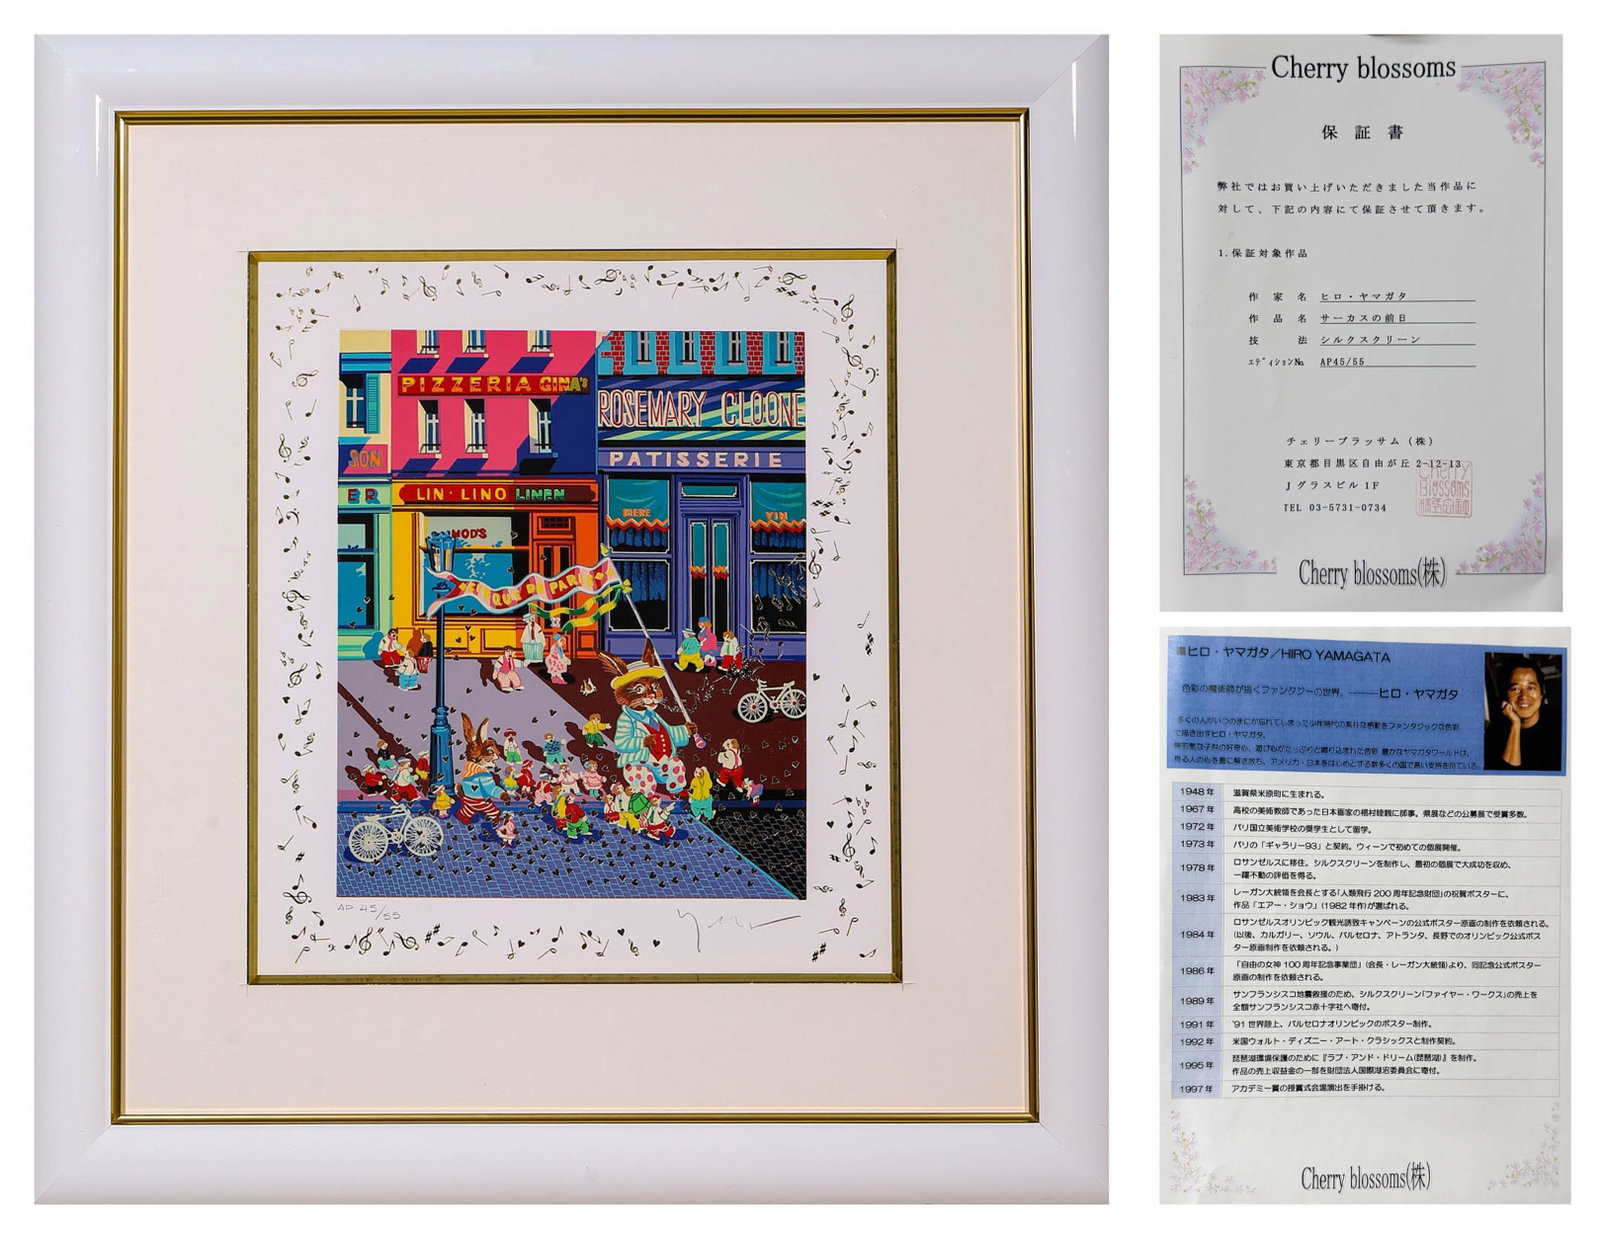 SON
ER
PIZZERIA GINA'S
LIN·LINO LINEN
MOD'S
ROSEMARY CLOONE
PATISSERIE
BIERE
VIN
DE PARIS
AP 45/55
Cherry blossoms
保証書
弊社ではお買い上げいただきました当作品に
対して、下記の内容にて保証させて頂きます。
1.保証対象作品
作家名 ヒロ・ヤマガタ
作品名 サーカスの前日
技法 シルクスクリーン
エディションNo. AP45/55
チェリーブラッサム(株)
東京都目黒区自由が丘 2-12-13
Jグラスビル1F
TEL 03-5731-0734
Cherry Blossoms
Cherry blossoms(株)
ヒロ・ヤマガタ/HIRO YAMAGATA
色彩の魔術師が描くファンタジーの世界。-------ヒロ・ヤマガタ
多くの人がいつのまにか忘れてしまった少年時代の素朴な感動をファンタジックな色彩
で描き出すヒロ・ヤマガタ。
無邪気な子供の好奇心、遊び心がたっぷりと織り込まれた色彩 豊かなヤマガタワールドは、
見る人の心を豊に解き放ち、アメリカ・日本をはじめとする数多くの国で高い支持を得ている。
1948年 滋賀県米原町に生まれる。
1967年 高校の美術教師であった日本画家の椙村睦親に師事。県展などの公募展で受賞多数。
1972年 パリ国立美術学校の奨学生として留学。
1973年 パリの「ギャラリー93」と契約。ウィーンで初めての個展開催。
1978年 ロサンゼルスに移住。シルクスクリーンを制作し、最初の個展で大成功を収め、
一躍不動の評価を得る。
1983年 レーガン大統領を会長とする「人類飛行200周年記念財団」の祝賀ポスターに、
作品「エアー・ショウ」(1982年作)が選ばれる。
1984年 ロサンゼルスオリンピック観光誘致キャンペーンの公式ポスター原画の制作を依頼される。
(以後、カルガリー、ソウル、バルセロナ、アトランタ、長野でのオリンピック公式ポス
ター原画制作を依頼される。)
1986年 「自由の女神100周年記念事業団」(会長・レーガン大統領)より、同記念公式ポスター
原画の制作を依頼される。
1989年 サンフランシスコ地震救援のため、シルクスクリーン「ファイヤー・ワークス」の売上を
全額サンフランシスコ赤十字社へ寄付。
1991年 '91世界陸上、バルセロナオリンピックのポスター制作。
1992年 米国ウォルト・ディズニー・アート・クラシックスと制作契約。
1995年 琵琶湖環境保護のために『ラブ・アンド・ドリーム(琵琶湖)』を制作。
作品の売上収益金の一部を財団法人国際湖沼委員会に寄付。
1997年 アカデミー賞の授賞式会場演出を手掛ける。
Cherry blossoms(株)